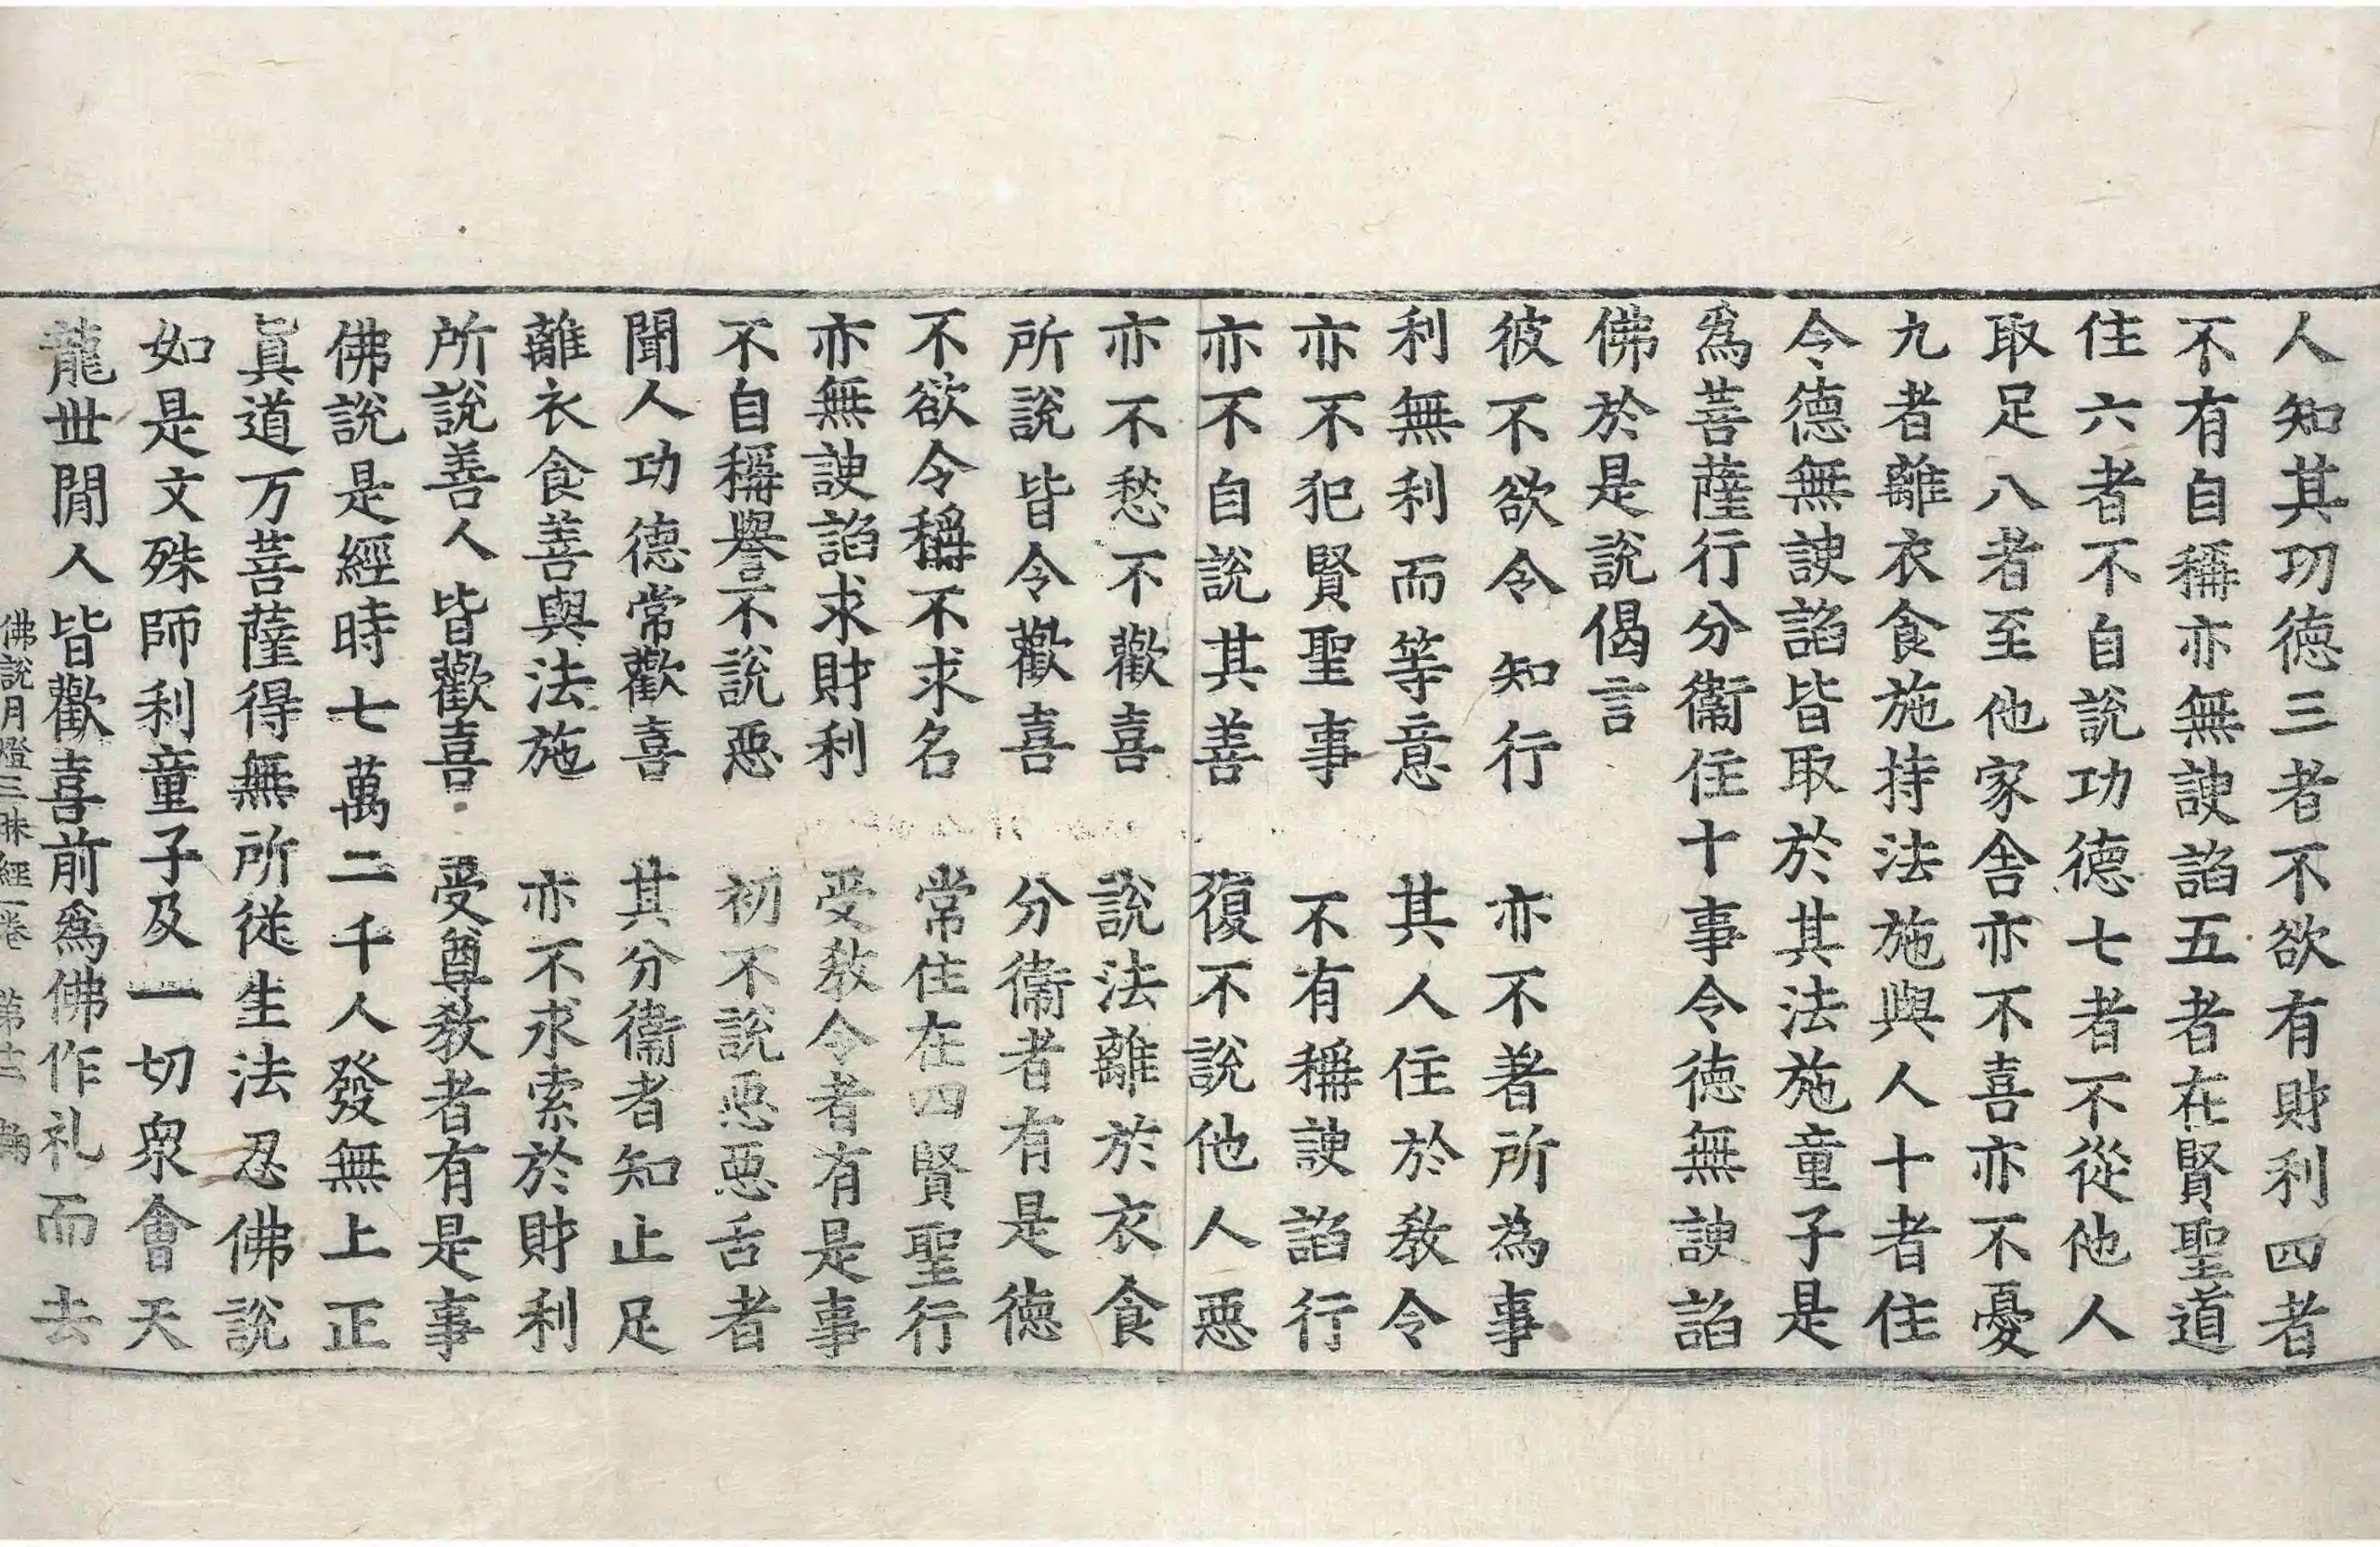 人知其功徳三者不欲有財利四者
不有自稱亦無諛諂五者在賢聖道
住六者不自說功德七者不從他人
取足八者至他家舍亦不喜亦不憂
九者離衣食施持法施與人十者住
令德無諛諂皆取於其法施童子是
爲菩薩行分衞住十事令德無諛諂
佛於是說偈言
彼不欲令知行　亦不著所為事
利無利而等意　其人住於教令
亦不犯賢聖事　不有稱諛諂行
亦不自說其善　復不說他人惡
亦不愁不歡喜　說法離於衣食
所說皆令歡喜　分衞者有是德
不欲令稱不求名　常住在四賢聖行
亦無諛諂求財利　受教令者有是事
不自稱譽不說惡　初不說惡惡舌者
聞人功德常歡喜　其分衞者知止足
離衣食善與法施　亦不求索於財利
所說善人皆歡喜　受尊教者有是事
佛說是經時七萬二千人發無上正
眞道万菩薩得無所從生法忍佛說
如是文殊師利童子及一切衆會天
龍丗閒人皆歡喜前爲佛作礼而去
佛說月燈三昧經一卷　第十二